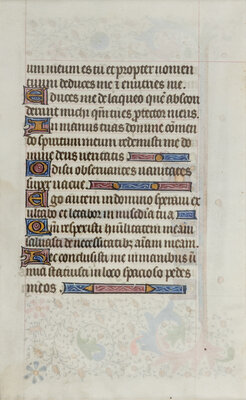 um meum es tu et propter nomen
tuum deduces me et enutries me.
Educes me de laqueo quem abscon
derunt michi quoniam tu es protector meus.
In manus tuas domine comen
do spiritum meum redemisti me do
mine deus veritatis
Odisti observantes vanitates
supervacue.
Ego autem in domino speravi ex
ultabo et letabor in misericordia tua
Quoniam respexisti humilitatem meam
salvasti de necessitatibus animam meam.
Nec conclusisti me in manibus ini
mici statuisti in loco spacioso pedes
meos.